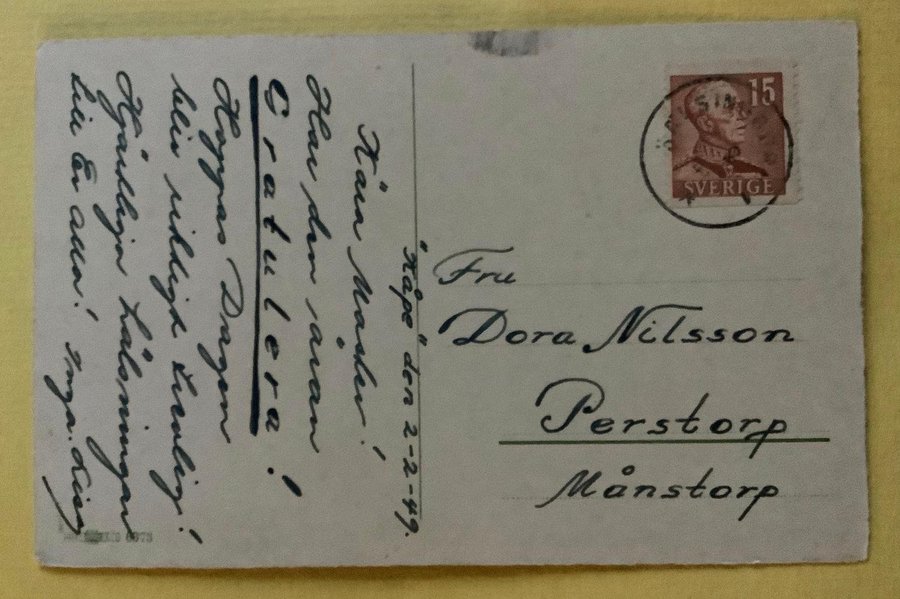 "Kåpe" den 2-2-49.
Kära Moster!
Har den äran
Gratulera!
Hoppas Dagen
blir riktigt trevlig!
Hjärtliga hälsningar
till Er alla! Inga.
15
SVERIGE
Fru
Dora Nilsson
Perstorp
Månstorp